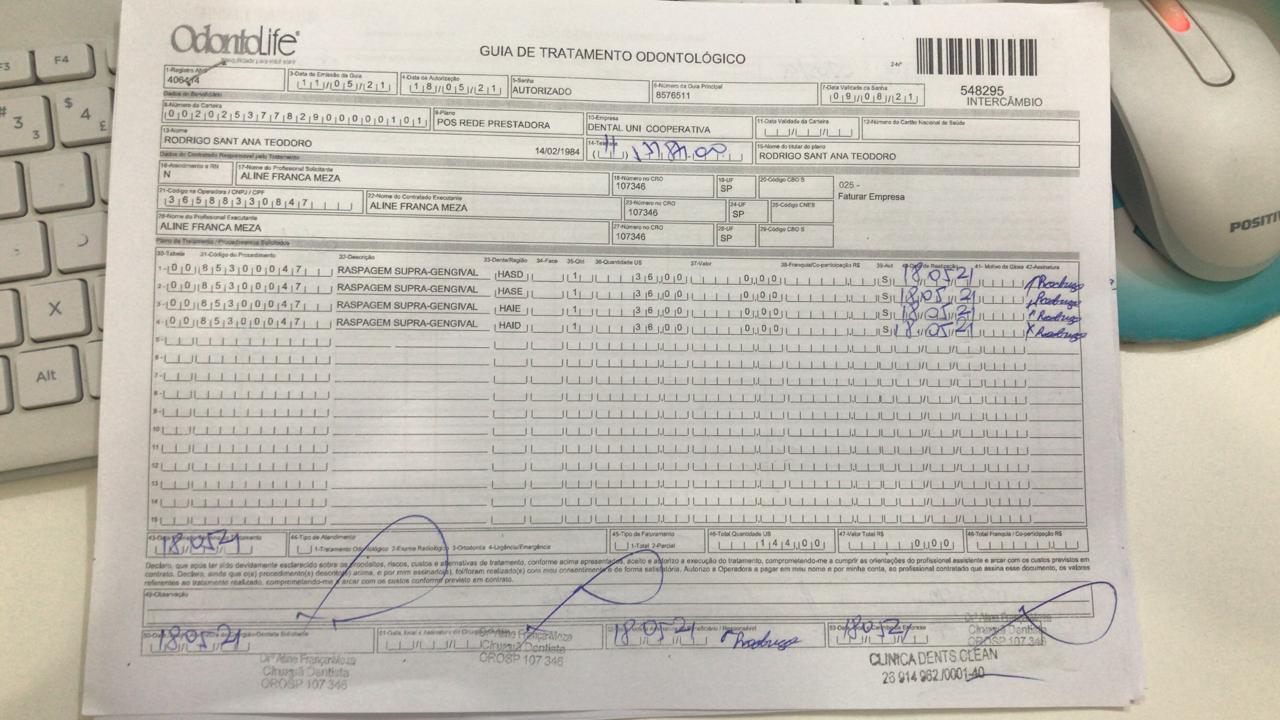 OdontoLife
GUIA DE TRATAMENTO ODONTOLÓGICO
2-Nº
548295
INTERCÂMBIO
1-Registro ANS
406414
3-Data de Emissão da Guia
11/05/21
4-Data de Autorização
18/05/21
5-Senha
AUTORIZADO
6-Número da Guia Principal
8576511
7-Data Validade da Senha
09/08/21
Dados do Beneficiário
8-Número da Carteira
00202537782900000101
9-Plano
POS REDE PRESTADORA
10-Empresa
DENTAL UNI COOPERATIVA
11-Data Validade da Carteira
12-Número do Cartão Nacional de Saúde
13-Nome
RODRIGO SANT ANA TEODORO
14/02/1984
15-Nome do titular do plano
RODRIGO SANT ANA TEODORO
Dados do Contratado Responsável pelo Tratamento
16-Atendimento a RN
N
17-Nome do Profissional Solicitante
ALINE FRANCA MEZA
18-Número no CRO
107346
19-UF
SP
20-Código CBO S
025 -
Faturar Empresa
21-Código na Operadora / CNPJ / CPF
36588330847
22-Nome do Contratado Executante
ALINE FRANCA MEZA
23-Número no CRO
107346
24-UF
SP
25-Código CNES
26-Nome do Profissional Executante
ALINE FRANCA MEZA
27-Número no CRO
107346
28-UF
SP
29-Código CBO S
Plano de Tratamento / Procedimentos Solicitados
30-Tabela 31-Código do Procedimento 32-Descrição 33-Dente/Região 34-Face 35-Qtd 36-Quantidade US 37-Valor 38-Franquia/Co-participação R$ 39-Aut 41- Motivo da Glosa 42-Assinatura
1- 00 85300047 RASPAGEM SUPRA-GENGIVAL HASD 1 3600 000 S 18/05/21 Rodrigo
2- 00 85300047 RASPAGEM SUPRA-GENGIVAL HASE 1 3600 000 S 18/05/21 Rodrigo
3- 00 85300047 RASPAGEM SUPRA-GENGIVAL HAIE 1 3600 000 S 18/05/21 Rodrigo
4- 00 85300047 RASPAGEM SUPRA-GENGIVAL HAID 1 3600 000 S 18/05/21 Rodrigo
5-
6-
7-
8-
9-
10
11
12
13
14
15
18/05/21
44-Tipo de Atendimento
1-Tratamento Odontológico 2-Exame Radiológico 3-Ortodontia 4-Urgência/Emergência
45-Tipo de Faturamento
1-Total 2-Parcial
46-Total Quantidade US
14400
47-Valor Total R$
000
48-Total Franquia / Co-participação R$
Declaro, que após ter sido devidamente esclarecido sobre os propósitos, riscos, custos e alternativas de tratamento, conforme acima apresentados, aceito e autorizo a execução do tratamento, comprometendo-me a cumprir as orientações do profissional assistente e arcar com os custos previstos em
contrato. Declaro, ainda que o(s) procedimento(s) descrito(s) acima, e por mim assinado(s), foi/foram realizado(s) com meu consentimento e de forma satisfatória. Autorizo a Operadora a pagar em meu nome e por minha conta, ao profissional contratado que assina esse documento, os valores
referentes ao tratamento realizado, comprometendo-me a arcar com os custos conforme previsto em contrato.
49-Observação
18/05/21
18/05/21 Rodrigo
Drª Aline França Meza
Cirurgiã Dentista
CROSP 107 346
Drª Aline França Meza
Cirurgiã Dentista
CROSP 107 346
Cirurgiã Dentista
CROSP 107 346
CLINICA DENTS CLEAN
26 914 962./0001-40
F3
F4
#
3
3
$
4
£
X
Alt
POSITIV